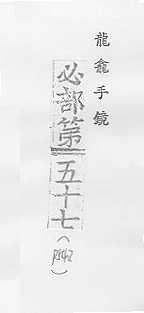 龍龕手鏡
必部第五十七